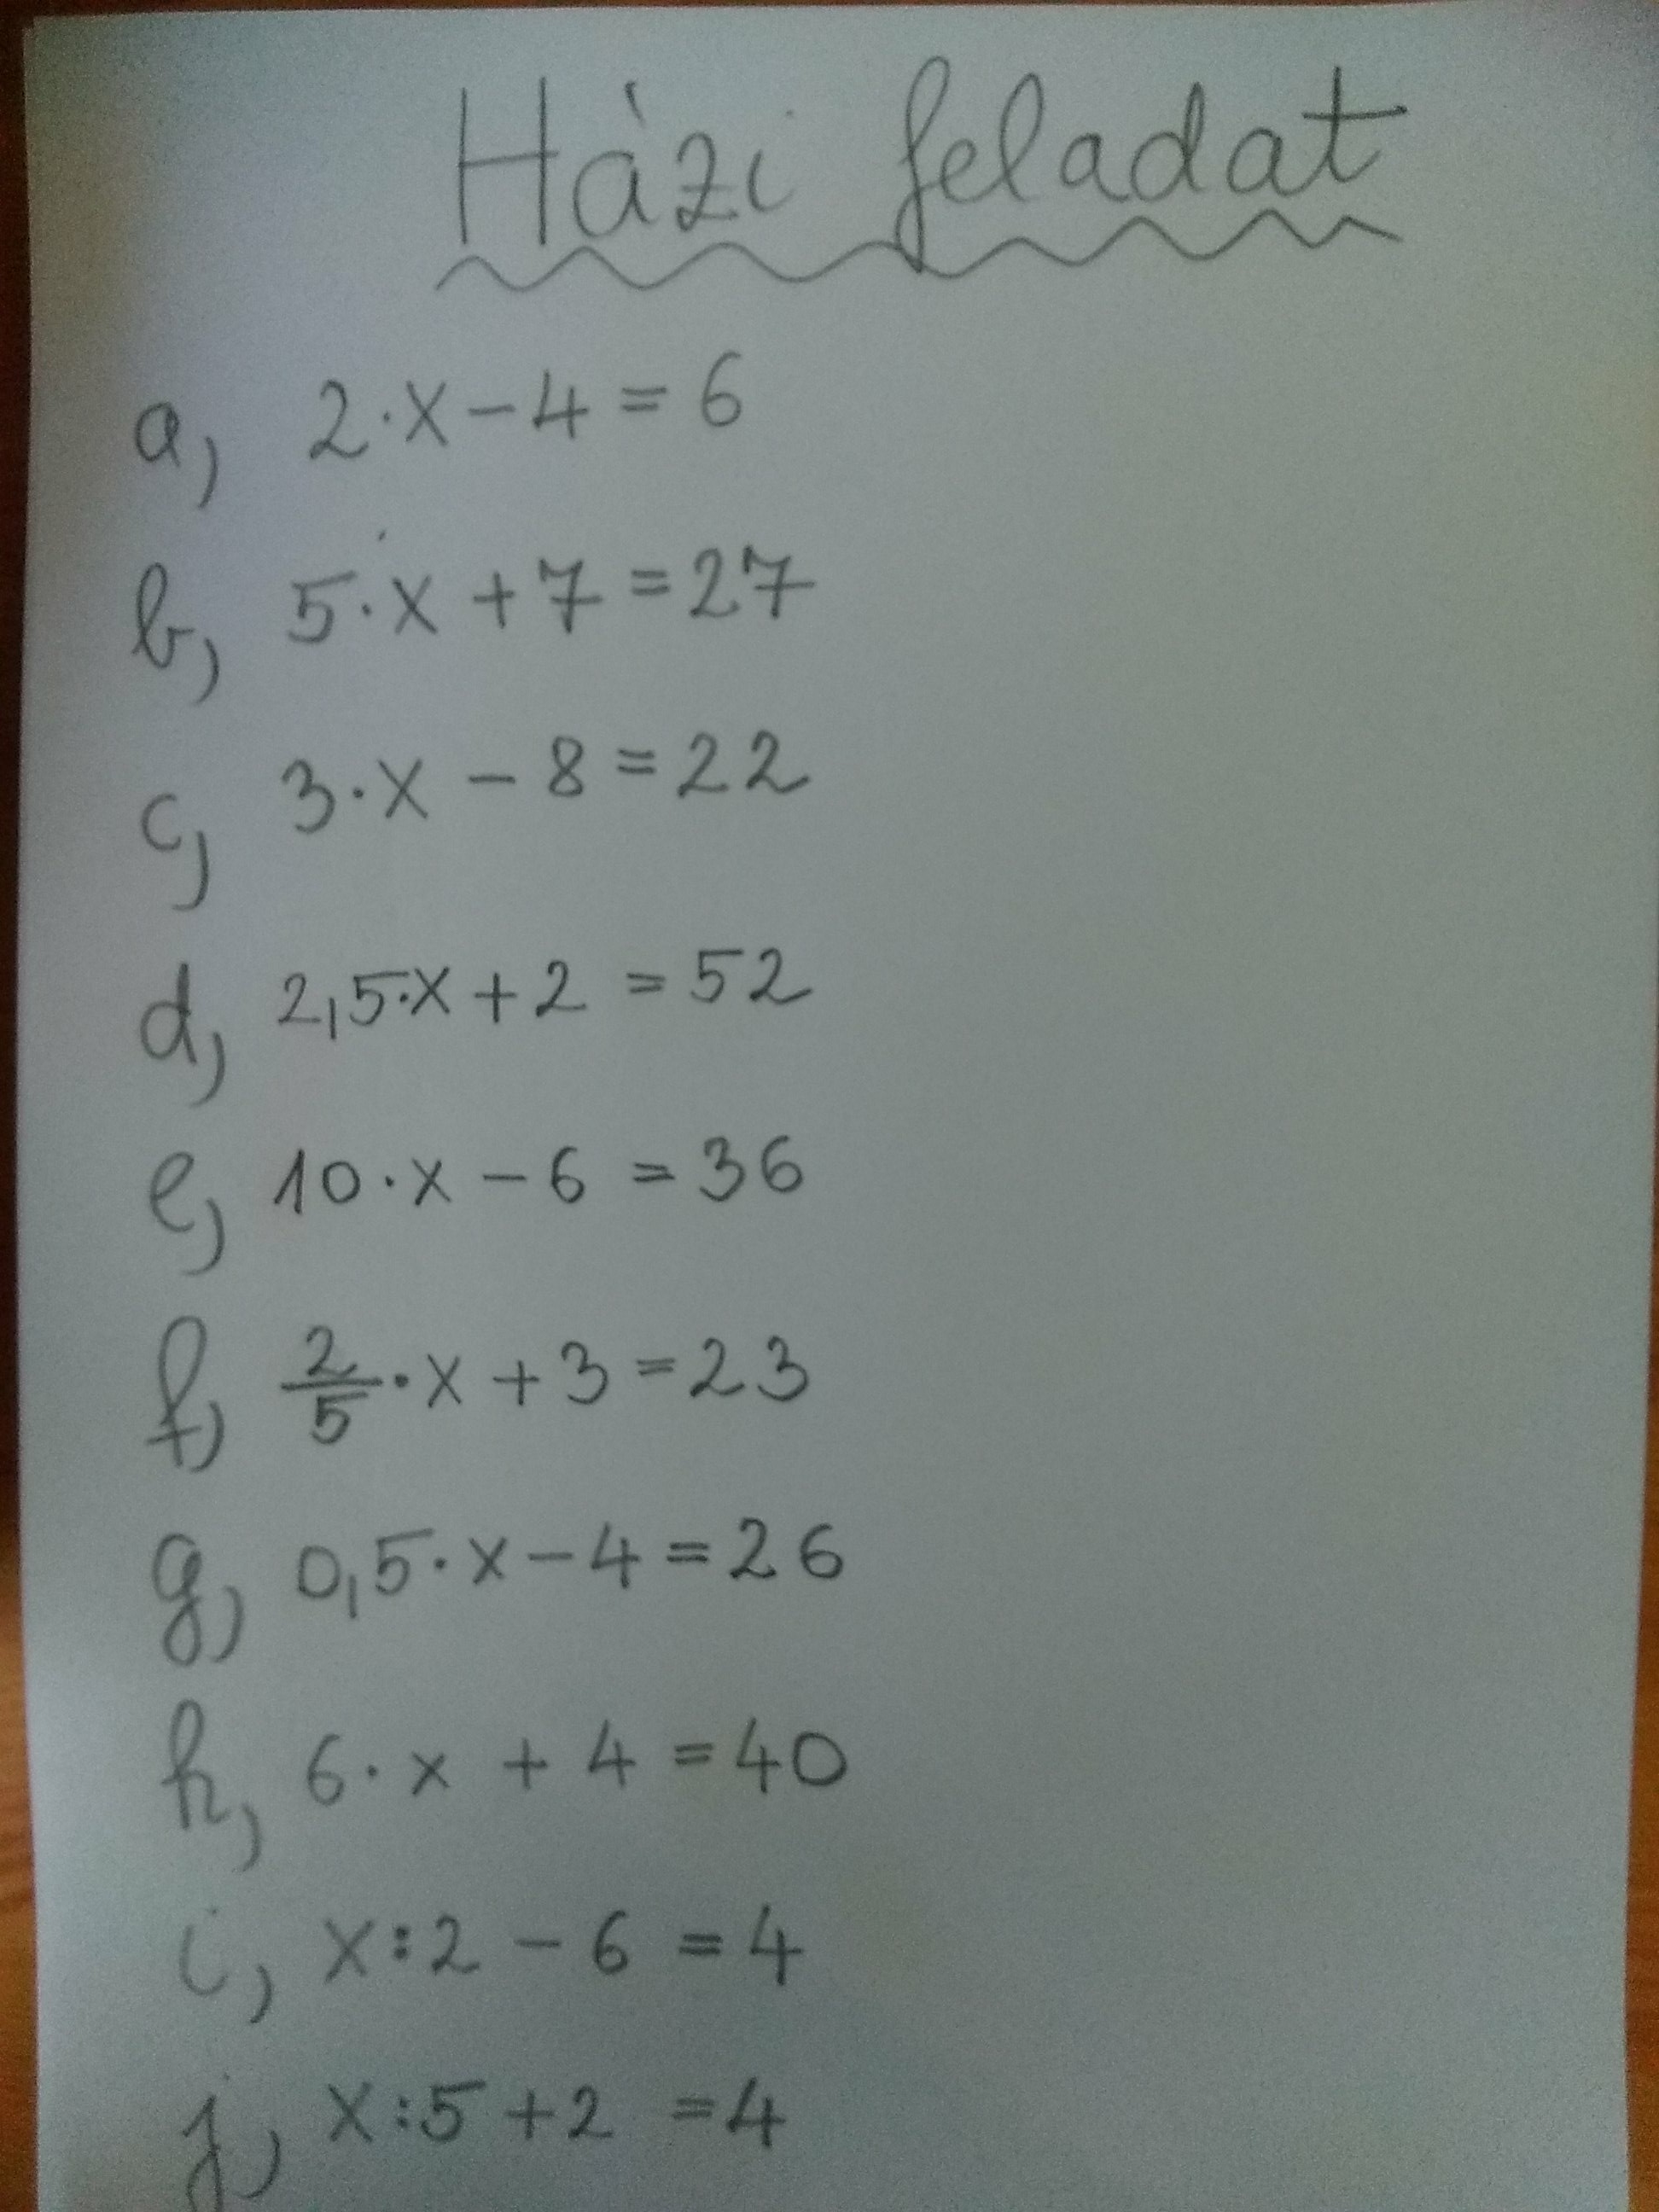 Házi feladat
a, 2·x-4=6
b, 5·x+7=27
c, 3·x-8=22
d, 2,5·x+2=52
e, 10·x-6=36
f, 2/5·x+3=23
g, 0,5·x-4=26
h, 6·x+4=40
i, x:2-6=4
j, x:5+2=4